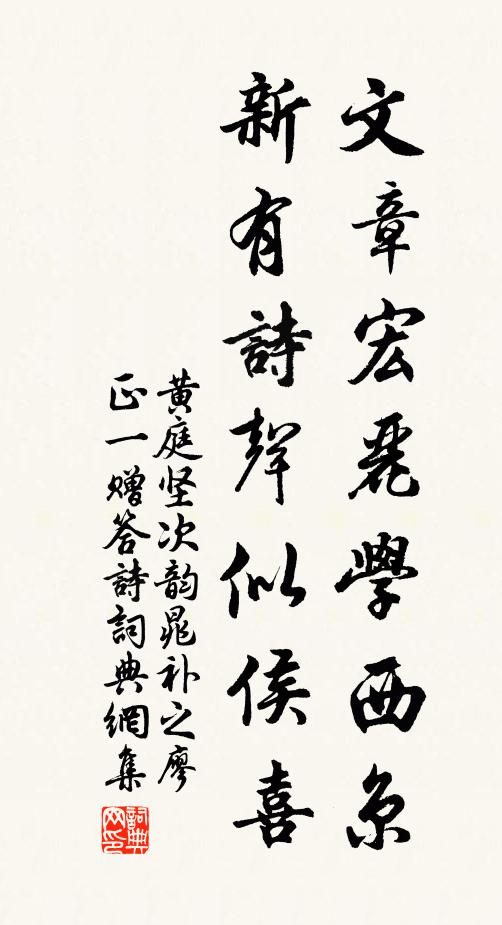 文章宏麗學西京
新有詩聲似侯喜
黄庭坚次韵晁补之廖
正一赠答詩詞典網集
詞典网印